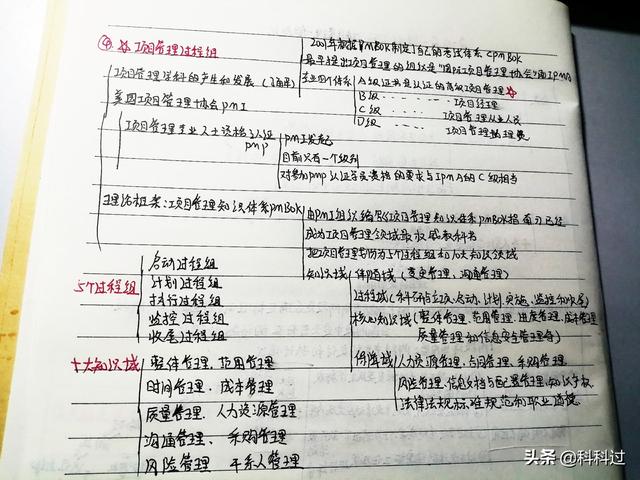 ④ ☆项目管理过程组
2001年根据PMBOK制定了自己的考试体系CPMBOK
最早提出项目管理的组织是"国际项目管理协会"简IPMA
项目管理学科的产生和发展(了解)
专业四个体系 A级证书是认证的高级项目管理☆
B级 …… 项目经理
C级 …… 项目管理从业人员
D级 …… 项目管理
美国项目管理协会PMI
项目管理专业人士资格认证
PMP
PMI发起
目前只有一个级别
对参加PMP认证学员资格的要求与IPMA的C级相当
理论框架:项目管理知识体系PMBOK
由PMI组织编写《项目管理知识体系PMBOK指南》已经
成为项目管理领域最权威教科书
把项目管理划分为5个过程组和10大知识领域
知识域 伴随域(变更管理、沟通管理)
5个过程组
启动过程组
计划过程组
执行过程组
监控过程组
收尾过程组
过程域(科研与立项、启动、计划、实施、监控和收尾)
核心知识域(整体管理、范围管理、进度管理、成本管理
质量管理和信息安全管理等)
保障域 人力资源管理、合同管理、采购管理
风险管理、信息文档与配置管理、知识产权
法律法规标准规范和职业道德
十大知识域
整体管理、范围管理
时间管理、成本管理
质量管理、人力资源管理
沟通管理、采购管理
风险管理 干系人管理
头条 @科科过